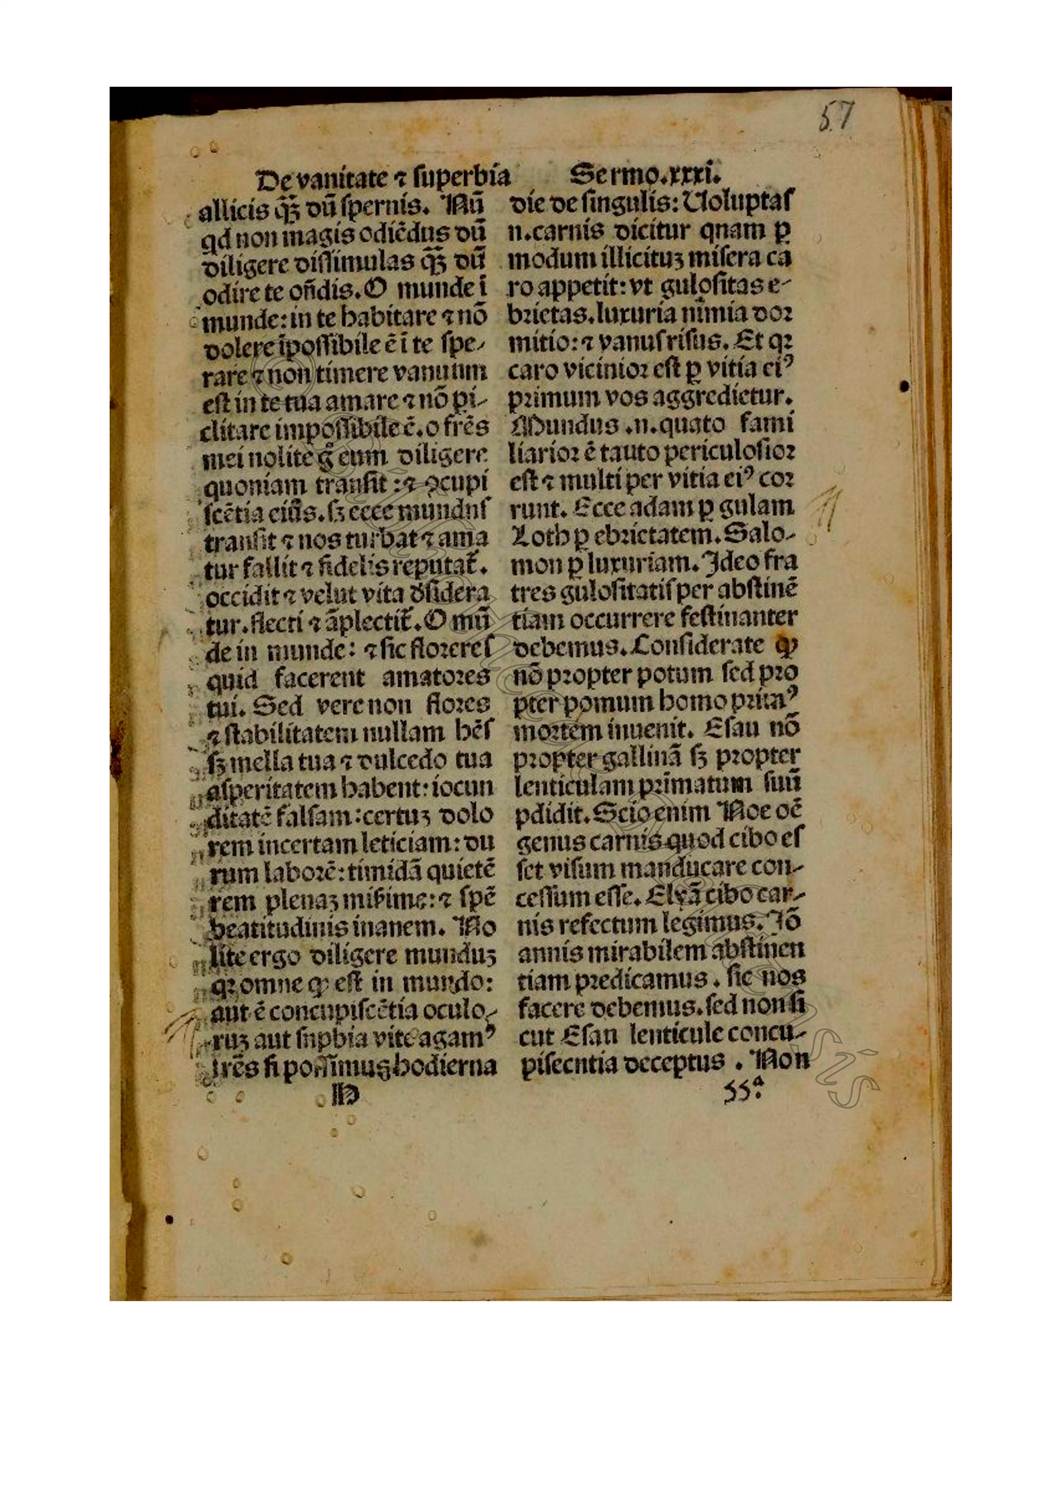 57
De vanitate ⁊ superbia Sermo.xxxi.
allicis q̄ꝫ dū spernis. Nū
qd non magis odiēdus dū
diligere dissimulas q̄ꝫ dū
odire te oñdis. O munde ī
munde: in te habitare ⁊ nō
dolere īpossibile ē ī te spe-
rare ⁊ non timere vanuum
est in te tua amare ⁊ nō ꝑi-
clitare impossibile ē. o frēs
mei nolite g̊ eum diligere
quoniam transit: ⁊ ꝯcupi
scētia eiūs. sꝫ ecce mundus
transit ⁊ nos turbat ⁊ ama
tur fallit ⁊ fidelis reputat̄.
occidit ⁊ velut vita d̄sidera
tur. flecti ⁊ āplectit̄. O mū
de in munde: ⁊ sic floreres
quid facerent amatores
tui. Sed vere non flores
⁊ stabilitatem nullam hēs
sꝫ mella tua ⁊ dulcedo tua
asperitatem habent: iocun
ditatē falsam: certuꝫ dolo
rem incertam leticiam: du
rum laborē: timidā quietē
rem plenaꝫ mis̄ime: ⁊ spē
beatitudinis inanem. No
lite ergo diligere munduꝫ
qꝛ omne qꝫ est in mundo:
aut ē concupiscētia oculo-
ruꝫ aut suꝑbia vite agamꝰ
frēs si possimus hodierna
H
die de singulis: Voluptas
n. carnis dicitur qnam ꝑ
modum illicituꝫ misera ca
ro appetit: vt gulositas e-
brietas. luxuria nimia dor
mitio: ⁊ vanus risus. Et qꝛ
caro vicinior est ꝑ vitia eiꝰ
primum vos aggredietur.
Mundus .n. quato fami
liarior ē tauto periculosior
est ⁊ multi per vitia eiꝰ cor
runt. Ecce adam ꝑ gulam
Loth ꝑ ebrietatem. Salo-
mon ꝑ luxuriam. Ideo fra
tres gulositatis per abstinē
tiam occurrere festinanter
debemus. Considerate qꝫ
nō propter potum sed pro
pter pomum homo primꝰ
mortem inuenit. Esau nō
propter gallinā sꝫ propter
lenticulam primatum suū
ꝑdidit. Scio enim Noe oē
genus carnis quod cibo es
set visum manducare con-
cessum esse. Elyā cibo car-
nis refectum legimus. Iō
annis mirabilem abstinen
tiam predicamus. sic nos
facere debemus. sed non si
cut Esau lenticule concu-
piscentia deceptus. Non
55ª